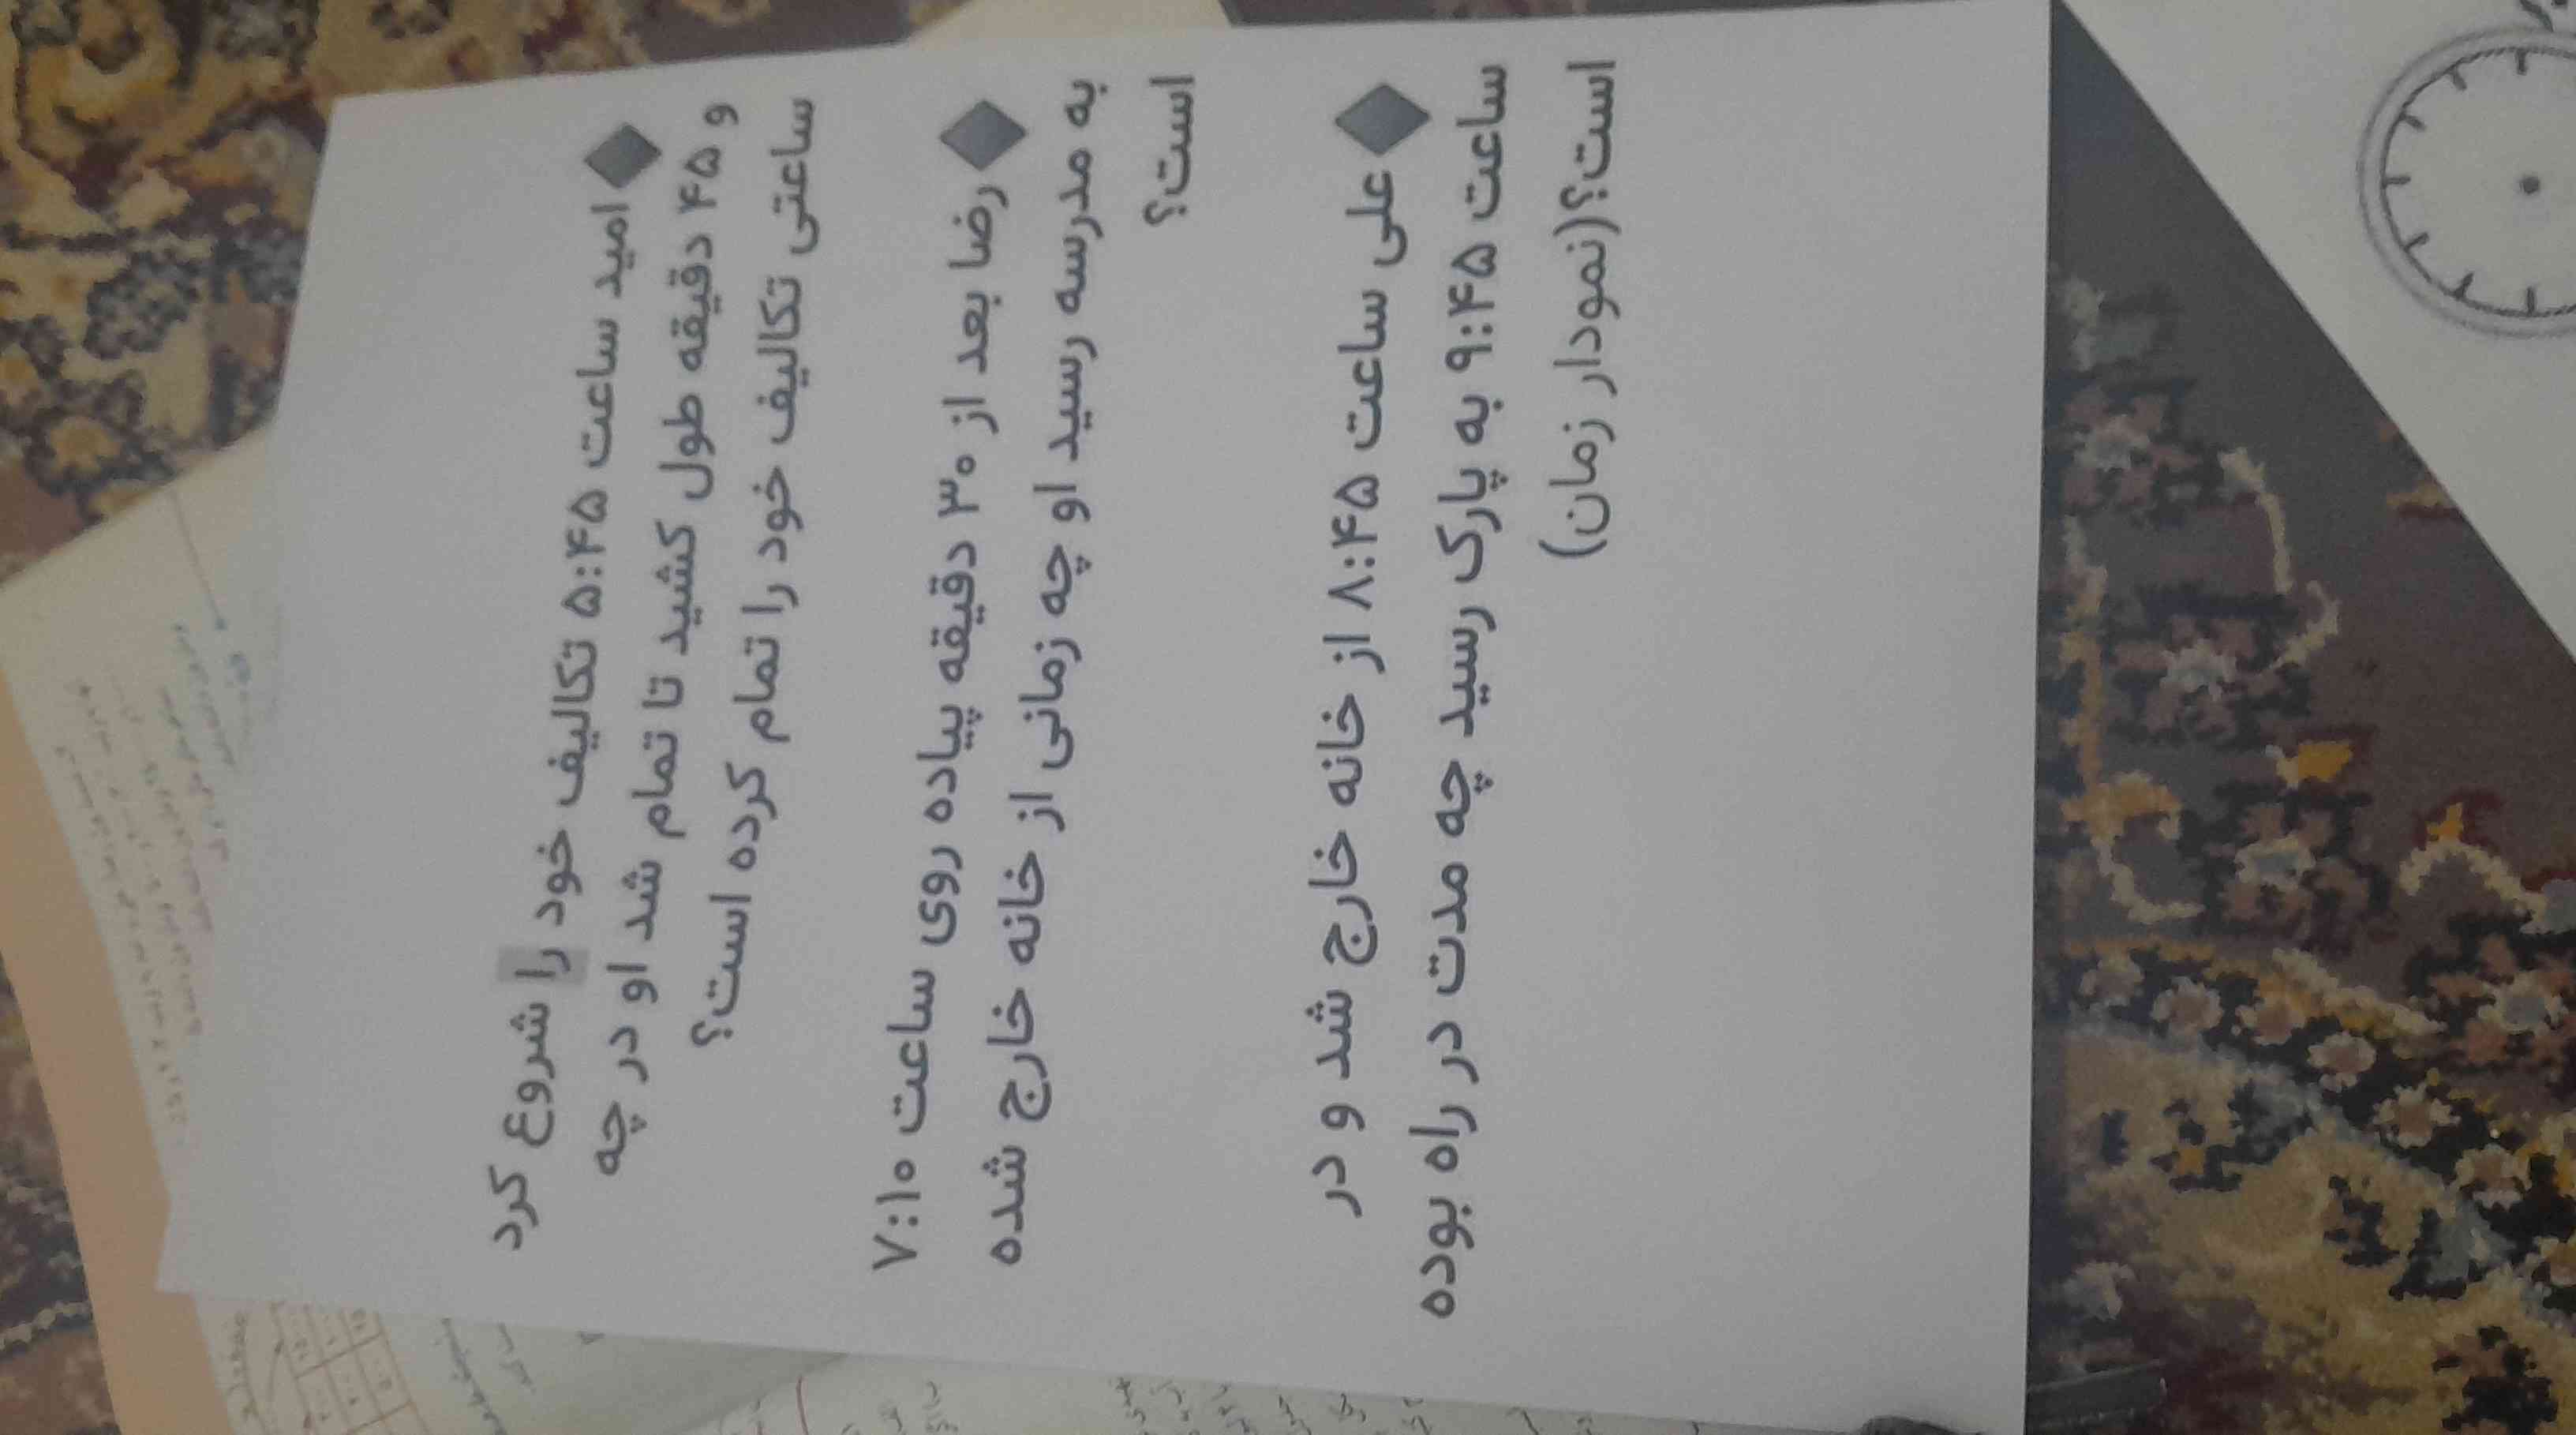 امید ساعت ۵:۴۵ تکالیف خود را شروع کرد
و ۴۵ دقیقه طول کشید تا تمام شد او در چه
ساعتی تکالیف خود را تمام کرده است؟
رضا بعد از ۳۰ دقیقه پیاده روی ساعت ۷:۱۰
به مدرسه رسید او چه زمانی از خانه خارج شده
است؟
علی ساعت ۸:۴۵ از خانه خارج شد و در
ساعت ۹:۴۵ به پارک رسید چه مدت در راه بوده
است؟(نمودار زمان)